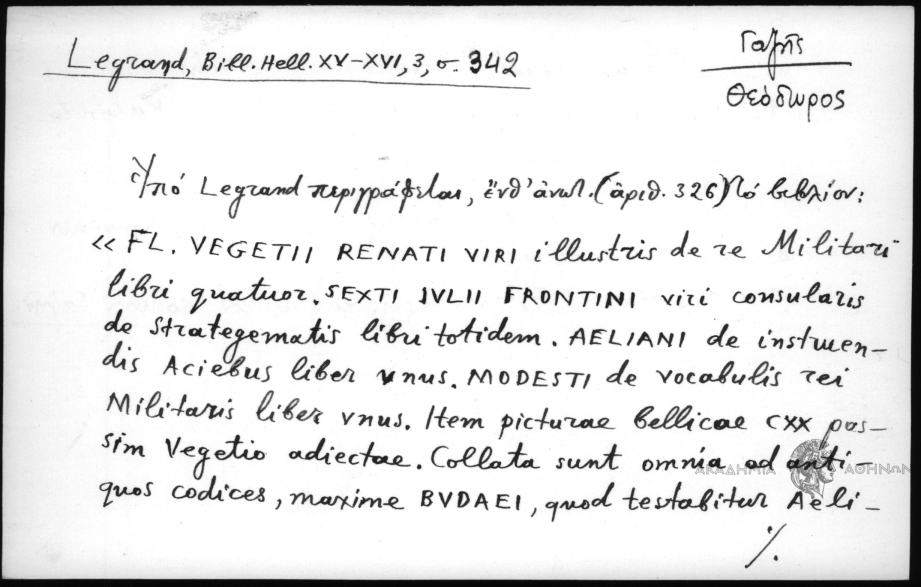 Legrand, Bill. Hell. XV-XVI, 3, σ. 342
Γαζῆς
Θεόδωρος
Ὑπό Legrand περιγράφεται, ἔνθ' ἀνωτ. (ἀριθ. 326) τό βιβλίον:
« FL. VEGETII RENATI VIRI illustris de re Militari
libri quatuor. SEXTI JVLII FRONTINI viri consularis
de Strategematis libri totidem. AELIANI de instruen-
dis Aciebus liber vnus. MODESTI de vocabulis rei
Militaris liber vnus. Item picturae bellicae CXX pas-
sim Vegetio adiectae. Collata sunt omnia ad anti-
ΑΚΑΔΗΜΙΑ ΑΘΗΝΩΝ
quos codices, maxime BVDAEI, quod testabitur Aeli-
./.